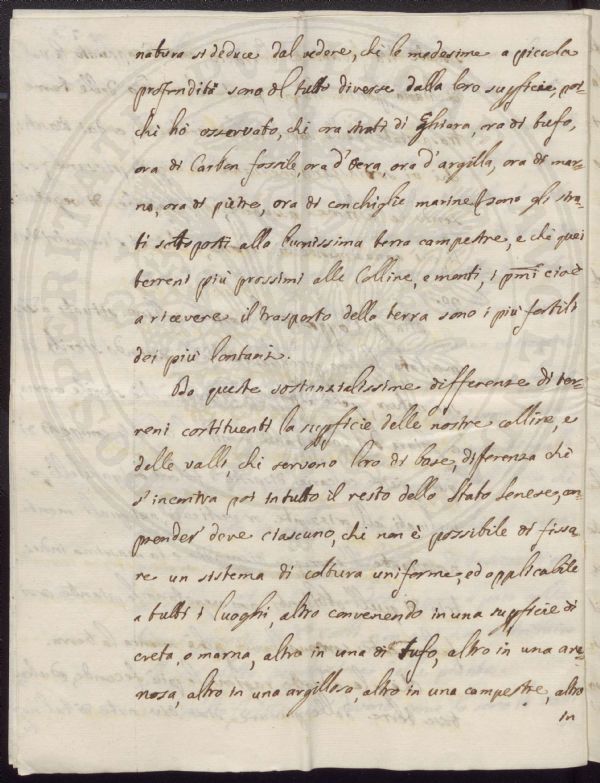 natura si deduce dal vedere, che le medesime a piccola
profondità sono del tutto diverse dalla loro supficie, poi-
chè hò osservato, che ora strati di Ghiara, ora di tufo,
ora di Carbon fossile, ora d'Ocra, ora d'argilla, ora di mar-
na, ora di pietre, ora di conchiglie marine sono gli stra-
ti sottoposti alla bunissima terra campestre, e che quei
terreni più prossimi alle Colline, e monti, i pmi cioè
a ricevere il trasporto della terra sono i più fertili
dei più lontani.
Da queste sostanzialissime differenze di ter-
reni costituenti la supficie delle nostre colline, e
delle valli, che servono loro di base, diferenza che
s'incontra poi in tutto il resto dello Stato Senese, com-
prender deve ciascuno, che non è possibile di fissa-
re un sistema di coltura uniforme, ed applicabile
a tutti i luoghi, altro convenendo in una supficie di
creta, o marna, altro in una di tufo, altro in una are-
nosa, altro in una argillosa, altro in una campestre, altro
in